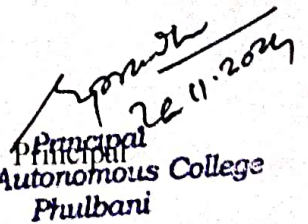 26.11.2024
Principal
Principal
Autonomous College
Phulbani